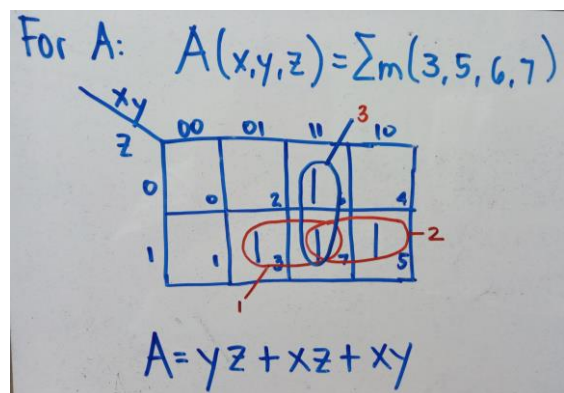 For A: A(x,y,z)=Σm(3,5,6,7)
xy
z
00 01 11 10
3
0
0 2 1 6 4
1
1 1 3 1 7 1 5
2
1
A=yz+xz+xy